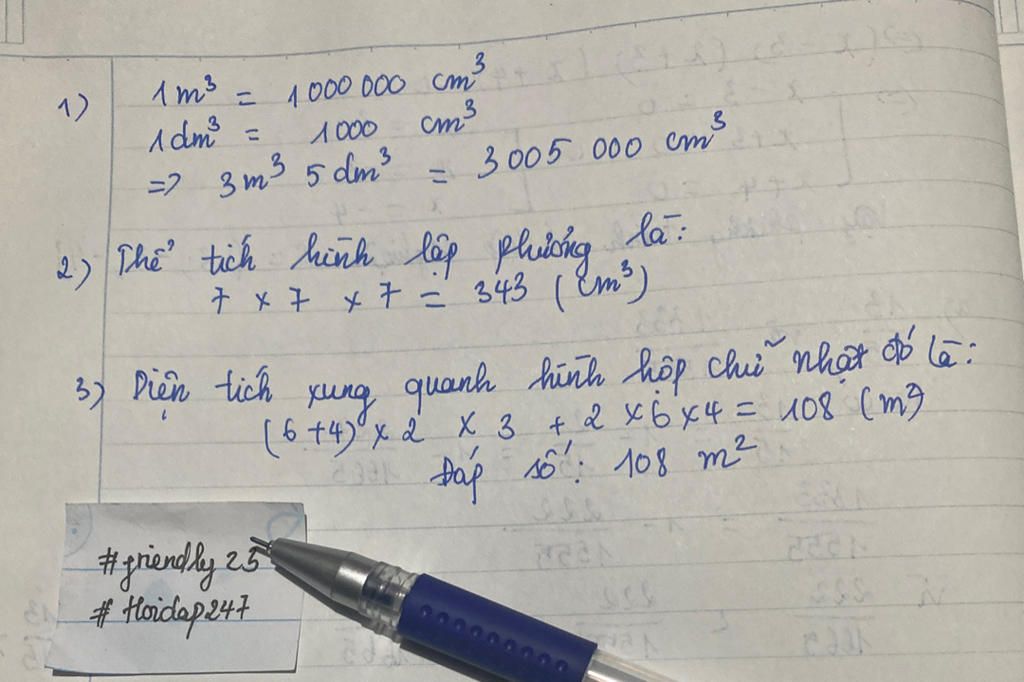 1) 1m³ = 1000 000 cm³
1dm³ = 1000 cm³
=> 3m³ 5dm³ = 3005 000 cm³
2) Thể tích hình lập phương là:
7 x 7 x 7 = 343 (cm³)
3) Diện tích xung quanh hình hộp chữ nhật đó là:
(6+4) x 2 x 3 + 2 x 6 x 4 = 108 (m²)
Đáp số: 108 m²
#friendly 25
# Hoidap247